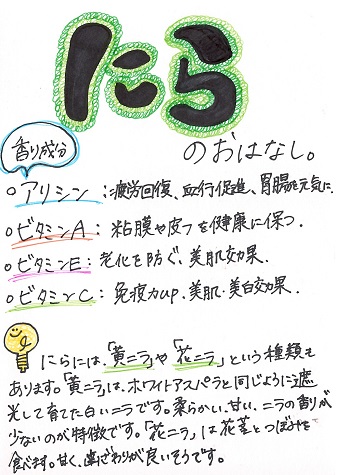 にら
のおはなし。
香り成分
○アリシン：疲労回復、血行促進、胃腸を元気に.
○ビタミンA：粘膜や皮フを健康に保つ.
○ビタミンE：老化を防ぐ、美肌効果.
○ビタミンC：免疫力up、美肌・美白効果.
にらには、「黄ニラ」や「花ニラ」という種類も
あります。「黄ニラ」は、ホワイトアスパラと同じように遮
光して育てた白いニラです。柔らかい、甘い、ニラの香りが
少ないのが特徴です。「花ニラ」は花茎とつぼみを
食べ料。甘く、歯ざわりが良いそうです。